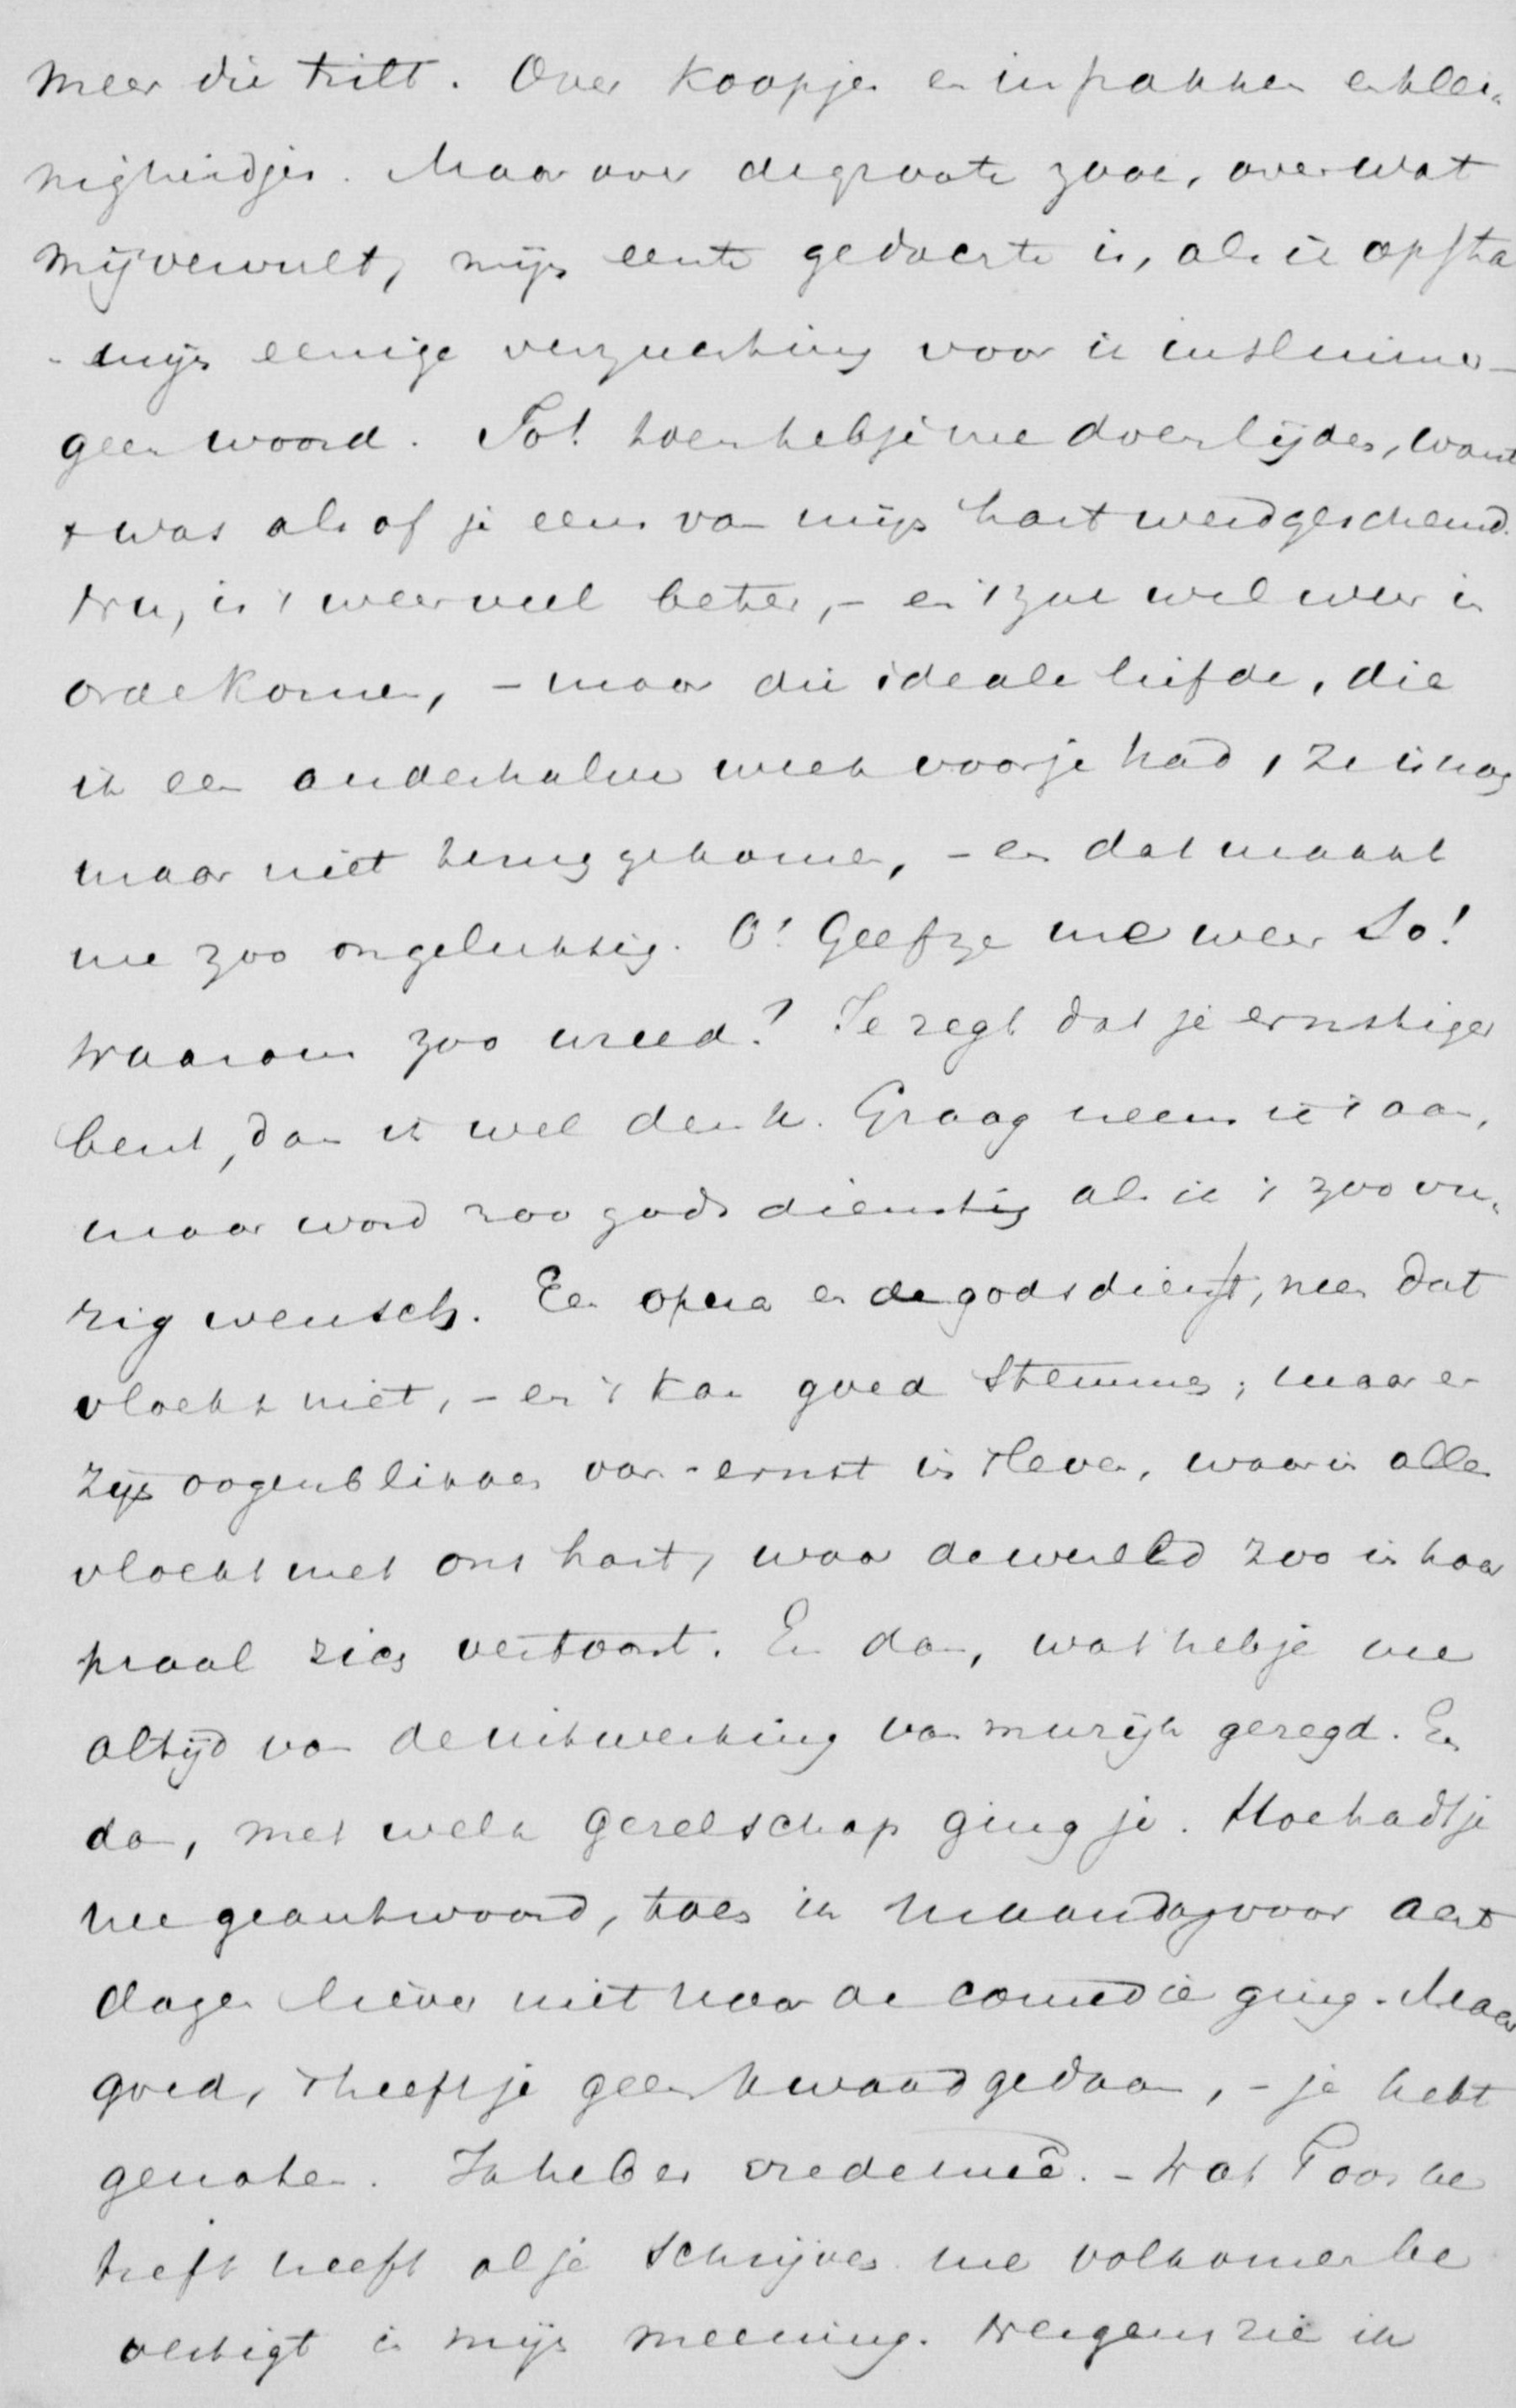 meer die trilt. Over koopjes en inpakken en klei-
nigheidjes. Maar over de groote zaak, over wat
mij vervult, mijn eerste gedachte is, als ik opsta
- mijn eenige verzuchting voor ik insluimer -
geen woord. Jo! toen heb je me doen lijden, want
't was alsof je eens van mijn hart werd gescheurd.
Nu, is 't weer veel beter, - en 't zal wel weer in
orde komen, - maar die ideale liefde, die
ik een anderhalve week voor je had, ze is nog
maar niet teruggekomen, - en dat maakt
me zoo ongelukkig. O! Geef ze me weer Jo!
Waarom zoo wreed? Je zegt dat je ernstiger
bent, dan ik wel denk. Graag neem ik 't aan,
maar word zoo godsdienstig als ik 't zoo vu-
rig wensch. Een opera en de godsdienst, neen dat
vloekt niet, - en 't kan goed stemmen; maar er
zijn oogenblikken van ernst in 't leven, waarin alles
vloekt met ons hart, waar de wereld zoo in haar
praal zich vertoont. En dan, wat heb je me
altijd van de uitwerking van muzijk gezegd. En
dan, met welk gezelschap ging je. Hoe hadt je
me geantwoord, toen ik Maandag voor acht
dagen liever niet naar de comedie ging. Maar
goed, 't heeft je geen kwaad gedaan, - je hebt
genoten. Ik heb er vrede meê. - Wat Poos be
treft heeft al je schrijven me volkomen be
vestigt in mijn meening. Nergens zie ik